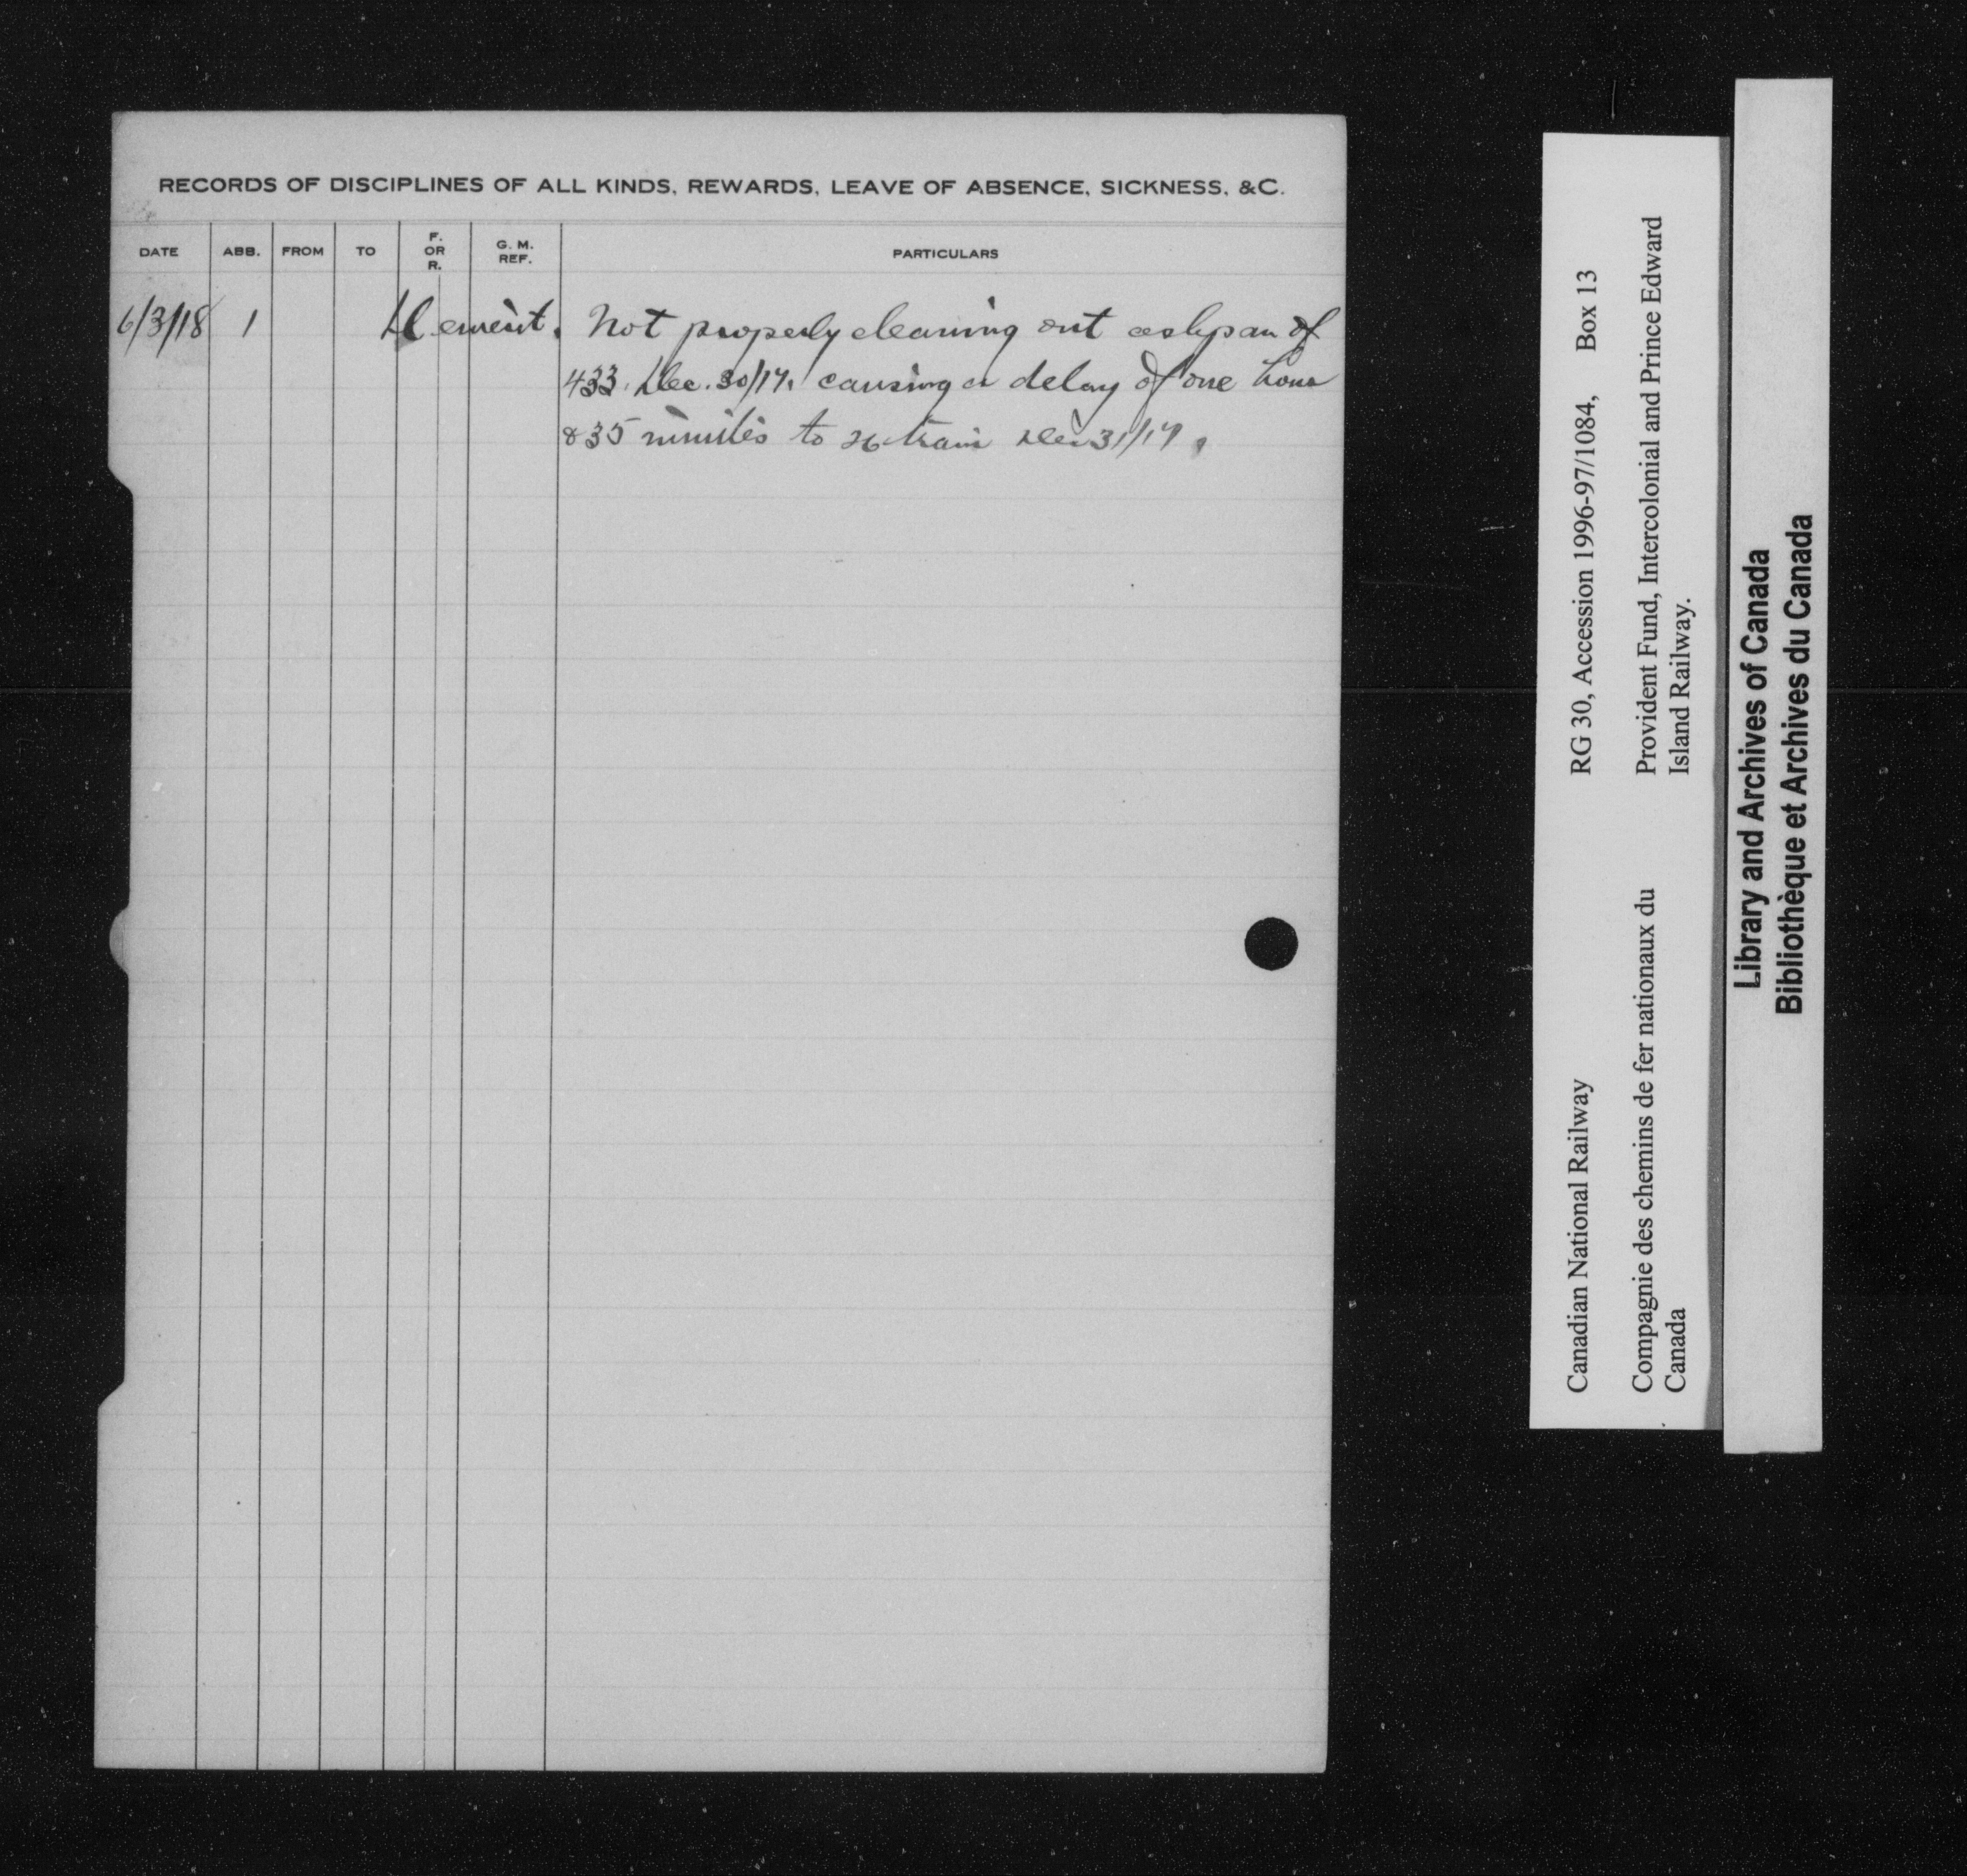 RECORDS OF DISCIPLINES OF ALL KINDS, REWARDS, LEAVE OF ABSENCE, SICKNESS, &C.
DATE ABB. FROM TO F. OR R. G. M. REF. PARTICULARS
6/3/18 1 Demerit. Not properly cleaning out ashpan of
433. Dec. 30/17. causing a delay of one hour
& 35 minutes to 26 train Dec 31/17.
RG 30, Accession 1996-97/1084, Box 13
Provident Fund, Intercolonial and Prince Edward
Island Railway.
Canadian National Railway
Compagnie des chemins de fer nationaux du
Canada
Library and Archives of Canada
Bibliothèque et Archives du Canada